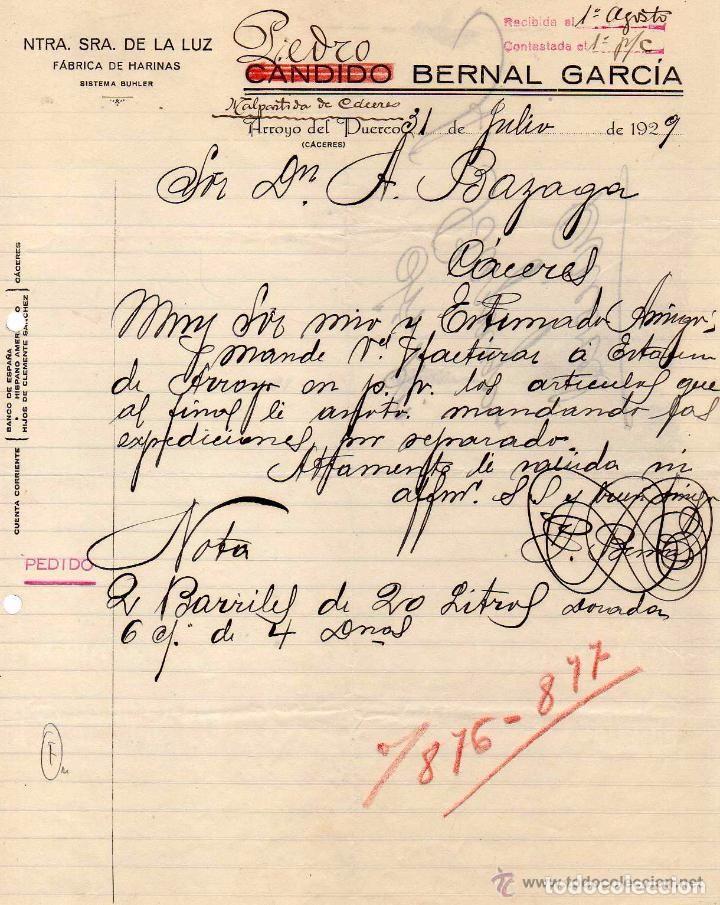 NTRA. SRA. DE LA LUZ
FÁBRICA DE HARINAS
SISTEMA BUHLER
Recibida el 1º Agosto
Contestada el 1º p/c
Piedro
CANDIDO BERNAL GARCÍA
Malpartida de Cáceres
Arroyo del Puerco 31 de Julio de 1929
(CÁCERES)
Sor Dn. A. Bazaga
Cáceres
Muy Sor mio y Estimado Amigo:
mande Vd. facturar á Estación
de Arroyo en p. v. los articulos que
al final le anoto. mandando las
expediciones por separado.
Attamente le saluda su
affmo. S S y buen Amigo
P. Bernal
Nota
PEDIDO
2 Barriles de 20 Litros Dorada
6 cj. de 4 Dnas
876-877
F
CUENTA CORRIENTE
BANCO DE ESPAÑA
" HISPANO AMER O
HIJOS DE CLEMENTE SÁNCHEZ
CÁCERES
www.todocoleccion.net
todocoleccion